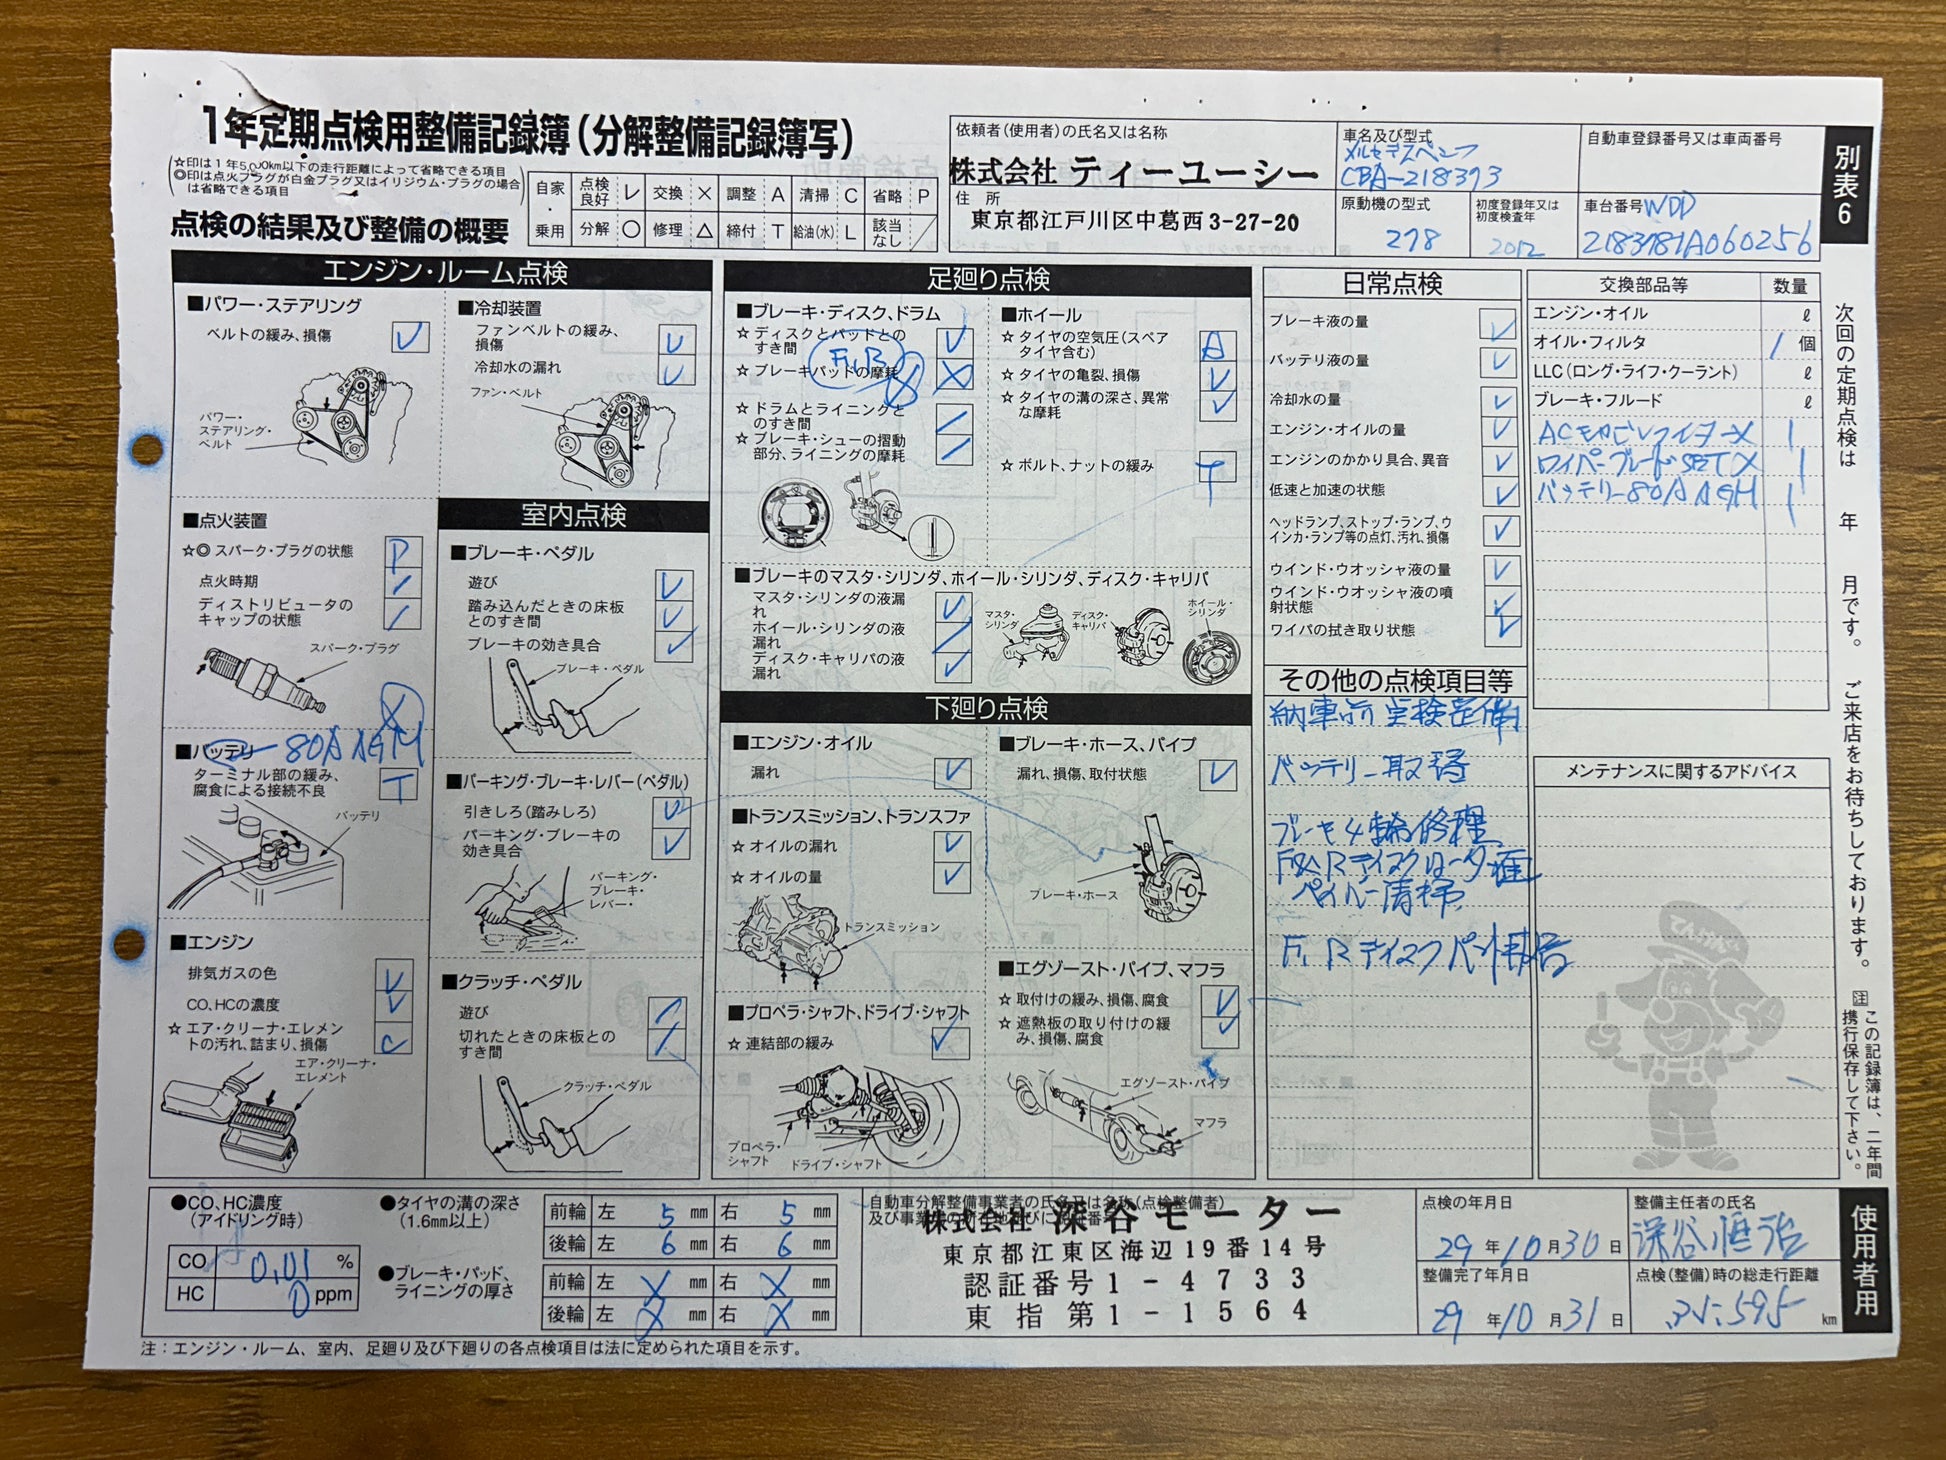 1年定期点検用整備記録簿(分解整備記録簿写)
☆印は1年5,000km以下の走行距離によって省略できる項目
◎印は点火プラグが白金プラグ又はイリジウム・プラグの場合
は省略できる項目
点検の結果及び整備の概要
自家・乗用
点検良好 レ 交換 × 調整 A 清掃 C 省略 P
分解 ○ 修理 △ 締付 T 給油(水) L 該当なし ／
依頼者(使用者)の氏名又は名称
株式会社 ティーユーシー
住 所
東京都江戸川区中葛西3-27-20
車名及び型式
メルセデスベンツ
CBA-218373
自動車登録番号又は車両番号
原動機の型式
278
初度登録年又は
初度検査年
2012
車台番号 WDD
2183731A060256
別表6
エンジン・ルーム点検
■パワー・ステアリング
ベルトの緩み、損傷 レ
パワー・
ステアリング・
ベルト
■冷却装置
ファンベルトの緩み、
損傷 レ
冷却水の漏れ レ
ファン・ベルト
■点火装置
☆◎ スパーク・プラグの状態 P
点火時期 ／
ディストリビュータの
キャップの状態 ／
スパーク・プラグ
■バッテリ 80A AGM ×
ターミナル部の緩み、
腐食による接続不良 T
バッテリ
■エンジン
排気ガスの色 レ
CO、HCの濃度 レ
☆ エア・クリーナ・エレメン
トの汚れ、詰まり、損傷 C
エア・クリーナ・
エレメント
室内点検
■ブレーキ・ペダル
遊び レ
踏み込んだときの床板
とのすき間 レ
ブレーキの効き具合 レ
ブレーキ・ペダル
■パーキング・ブレーキ・レバー(ペダル)
引きしろ(踏みしろ) レ
パーキング・ブレーキの
効き具合 レ
パーキング・
ブレーキ・
レバー・
■クラッチ・ペダル
遊び ／
切れたときの床板との
すき間 ／
クラッチ・ペダル
足廻り点検
■ブレーキ・ディスク、ドラム
☆ ディスクとパッドとの
すき間 レ
F、R ×
☆ ブレーキパッドの摩耗 ×
☆ ドラムとライニングと
のすき間 ／
☆ ブレーキ・シューの摺動
部分、ライニングの摩耗 ／
■ホイール
☆ タイヤの空気圧(スペア
タイヤ含む) A
☆ タイヤの亀裂、損傷 レ
☆ タイヤの溝の深さ、異常
な摩耗 レ
☆ ボルト、ナットの緩み T
■ブレーキのマスタ・シリンダ、ホイール・シリンダ、ディスク・キャリパ
マスタ・シリンダの液漏
れ レ
ホイール・シリンダの液
漏れ ／
ディスク・キャリパの液
漏れ レ
マスタ・
シリンダ
ディスク・
キャリパ
ホイール・
シリンダ
下廻り点検
■エンジン・オイル
漏れ レ
■トランスミッション、トランスファ
☆ オイルの漏れ レ
☆ オイルの量 レ
トランスミッション
■プロペラ・シャフト、ドライブ・シャフト
☆ 連結部の緩み レ
プロペラ・
シャフト
ドライブ・シャフト
■ブレーキ・ホース、パイプ
漏れ、損傷、取付状態 レ
ブレーキ・ホース
■エグゾースト・パイプ、マフラ
☆ 取付けの緩み、損傷、腐食 レ
☆ 遮熱板の取り付けの緩
み、損傷、腐食 レ
エグゾースト・パイプ
マフラ
日常点検
ブレーキ液の量 レ
バッテリ液の量 レ
冷却水の量 レ
エンジン・オイルの量 レ
エンジンのかかり具合、異音 レ
低速と加速の状態 レ
ヘッドランプ、ストップ・ランプ、ウ
インカ・ランプ等の点灯、汚れ、損傷 レ
ウインド・ウオッシャ液の量 レ
ウインド・ウオッシャ液の噴
射状態 レ
ワイパの拭き取り状態 レ
その他の点検項目等
納車前点検整備
バッテリー取替
ブレーキ4輪修理
F&Rディスクローター
ペイパー清掃
F、Rディスクパット
交換部品等 数量
エンジン・オイル ℓ
オイル・フィルタ 1 個
LLC(ロング・ライフ・クーラント) ℓ
ブレーキ・フルード ℓ
ACモゼレフィター× 1
ワイパーブレードSET× 1
バッテリー80A AGM 1
メンテナンスに関するアドバイス
次回の定期点検は 年 月です。 ご来店をお待ちしております。
注 この記録簿は、二年間
携行保存して下さい。
使用者用
●CO、HC濃度
(アイドリング時)
CO 0.01 %
HC 0 ppm
●タイヤの溝の深さ
(1.6mm以上)
前輪 左 5 mm 右 5 mm
後輪 左 6 mm 右 6 mm
●ブレーキ・パッド、
ライニングの厚さ
前輪 左 × mm 右 × mm
後輪 左 × mm 右 × mm
自動車分解整備事業者の氏名又は名称(点検整備者)
株式会社 深谷モーター
東京都江東区海辺19番14号
認証番号1-4733
東 指 第1-1564
点検の年月日
29 年 10 月 30 日
整備主任者の氏名
深谷恒治
整備完了年月日
29 年 10 月 31 日
点検(整備)時の総走行距離
595 km
注:エンジン・ルーム、室内、足廻り及び下廻りの各点検項目は法に定められた項目を示す。